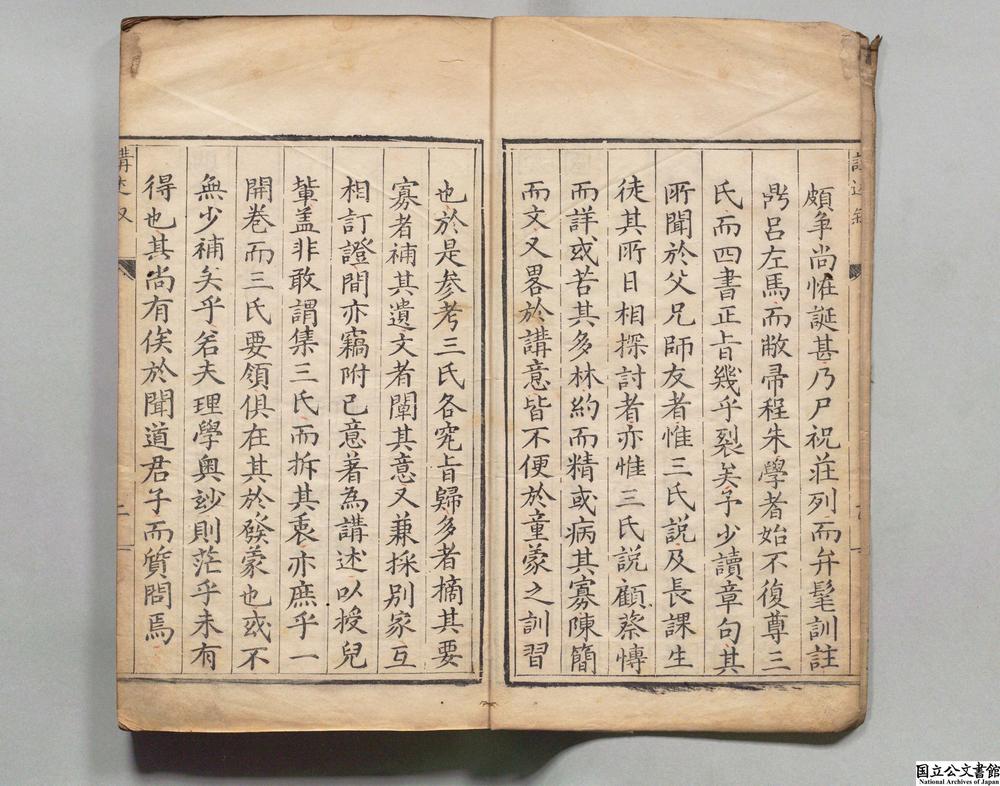 頗爭尚恠誕甚乃尸祝莊列而弁髦訓註
鼎呂左馬而敝帚程朱學者始不復尊三
氏而四書正旨幾乎裂矣予少讀章句其
所聞於父兄師友者惟三氏説及長課生
徒其所日相探討者亦惟三氏説顧蔡慱
而詳或苦其多林約而精或病其寡陳簡
而文又畧於講意皆不便於童蒙之訓習
也於是参考三氏各究旨歸多者摘其要
寡者補其遺文者闡其意又兼採别家互
相訂證間亦竊附己意著為講述以授兒
輩盖非敢謂集三氏而折其衷亦庶乎一
開卷而三氏要領俱在其於發蒙也或不
無少補矣乎若夫理學奥玅則茫乎未有
得也其尚有俟於聞道君子而質問焉
二
国立公文書館
National Archives of Japan